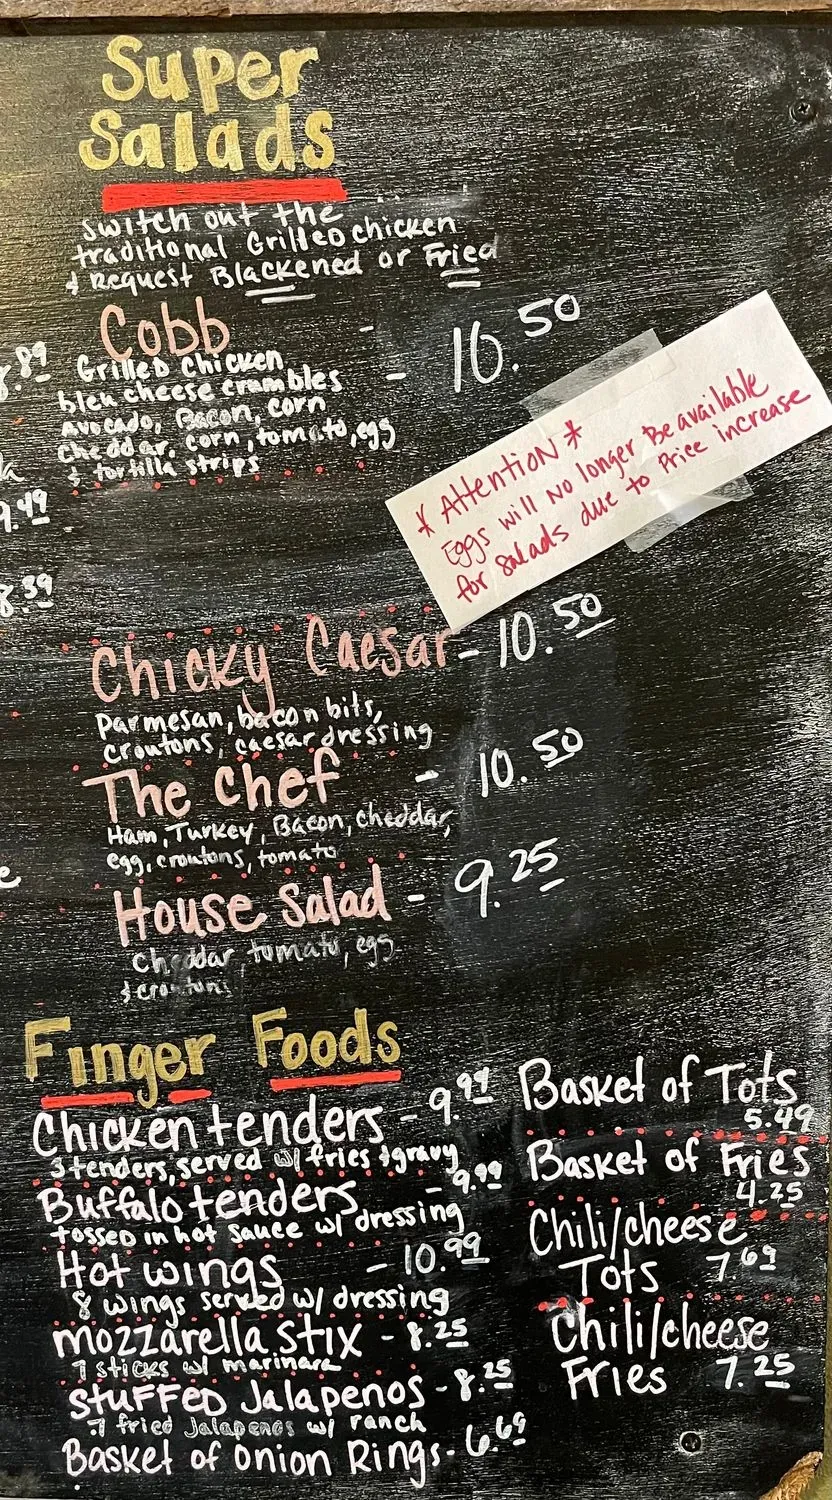 Super
Salads
switch out the
traditional Grilled chicken
& Request Blackened or Fried
Cobb - 10.50
Grilled chicken
bleu cheese crumbles -
Avocado, Bacon, corn
cheddar, corn, tomato, egg
& tortilla strips
8.89
9.49
8.39
* Attention *
Eggs will no longer be available
for salads due to Price increase
Chicky Caesar - 10.50
Parmesan, bacon bits,
croutons, caesar dressing
The Chef - 10.50
Ham, Turkey, Bacon, cheddar,
egg, croutons, tomato
House Salad - 9.25
cheddar, tomato, egg
& croutons
Finger Foods
Chicken tenders - 9.99
3 tenders, served w/ fries & gravy
Buffalo tenders - 9.99
tossed in hot sauce w/ dressing
Hot wings - 10.99
8 wings served w/ dressing
mozzarella stix - 8.25
7 sticks w/ marinara
stuffed Jalapenos - 8.25
7 fried Jalapenos w/ ranch
Basket of onion Rings - 6.69
Basket of Tots
5.49
Basket of Fries
4.25
Chili/cheese
Tots 7.69
Chili/cheese
Fries 7.25